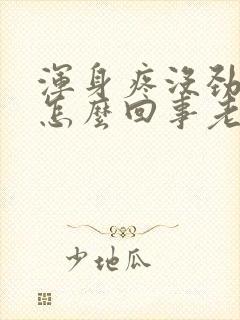 渾身疼沒勁
怎麼回事老
少地瓜